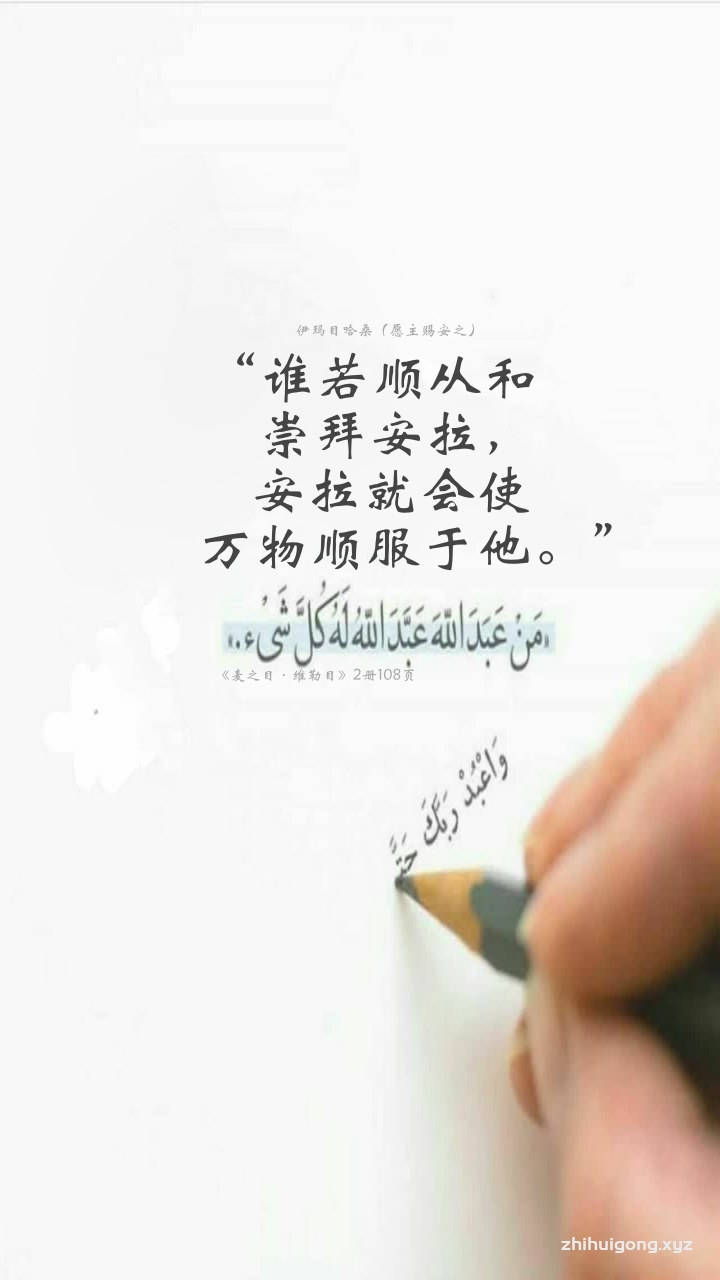 伊玛目哈桑（愿主赐安之）
“谁若顺从和
崇拜安拉，
安拉就会使
万物顺服于他。”
«مَنْ عَبَدَ اللّهَ عَبَّدَ اللّهُ لَهُ كُلَّ شَىْءٍ.»
《麦之目·维勒目》2册108页
وَاعْبُدْ رَبَّكَ حَتَّ
zhihuigong.xyz